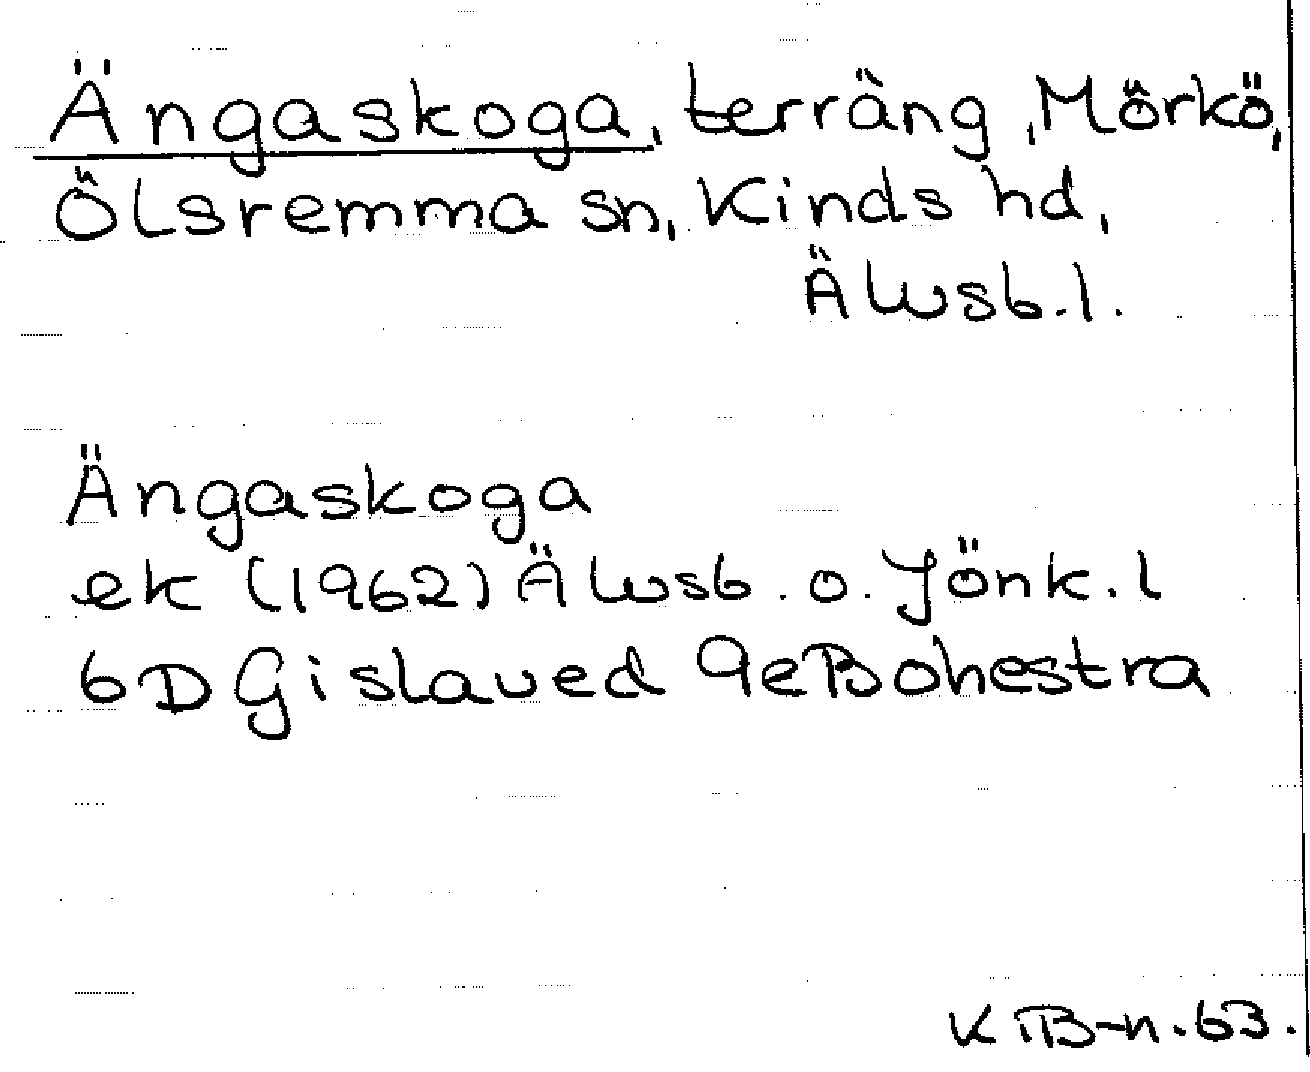 Ängaskoga, terräng, Mörkö,
Ölsremma sn, Kinds hd,
Älvsb.l.
Ängaskoga
ek (1962) Älvsb. o. Jönk.l
6D Gislaved 9e Bohestra
K TB-n. 63.